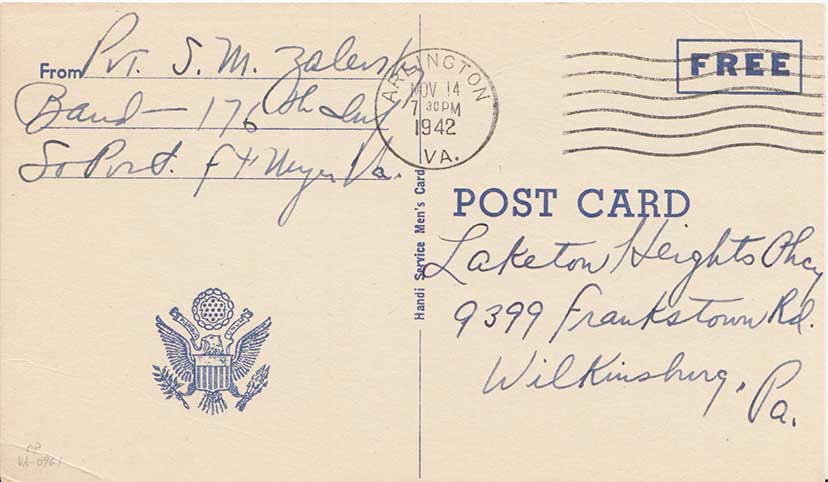 From Pvt. S. M. Zalevsky
Band — 176th Inf
So Post. Ft Meyer Va.
ARLINGTON
NOV 14
7 30 PM
1942
VA.
FREE
Handi Service Men's Card
POST CARD
Laketon Heights Phcy
9399 Frankstown Rd.
Wilkinsburg, Pa.
CP
VA-0961